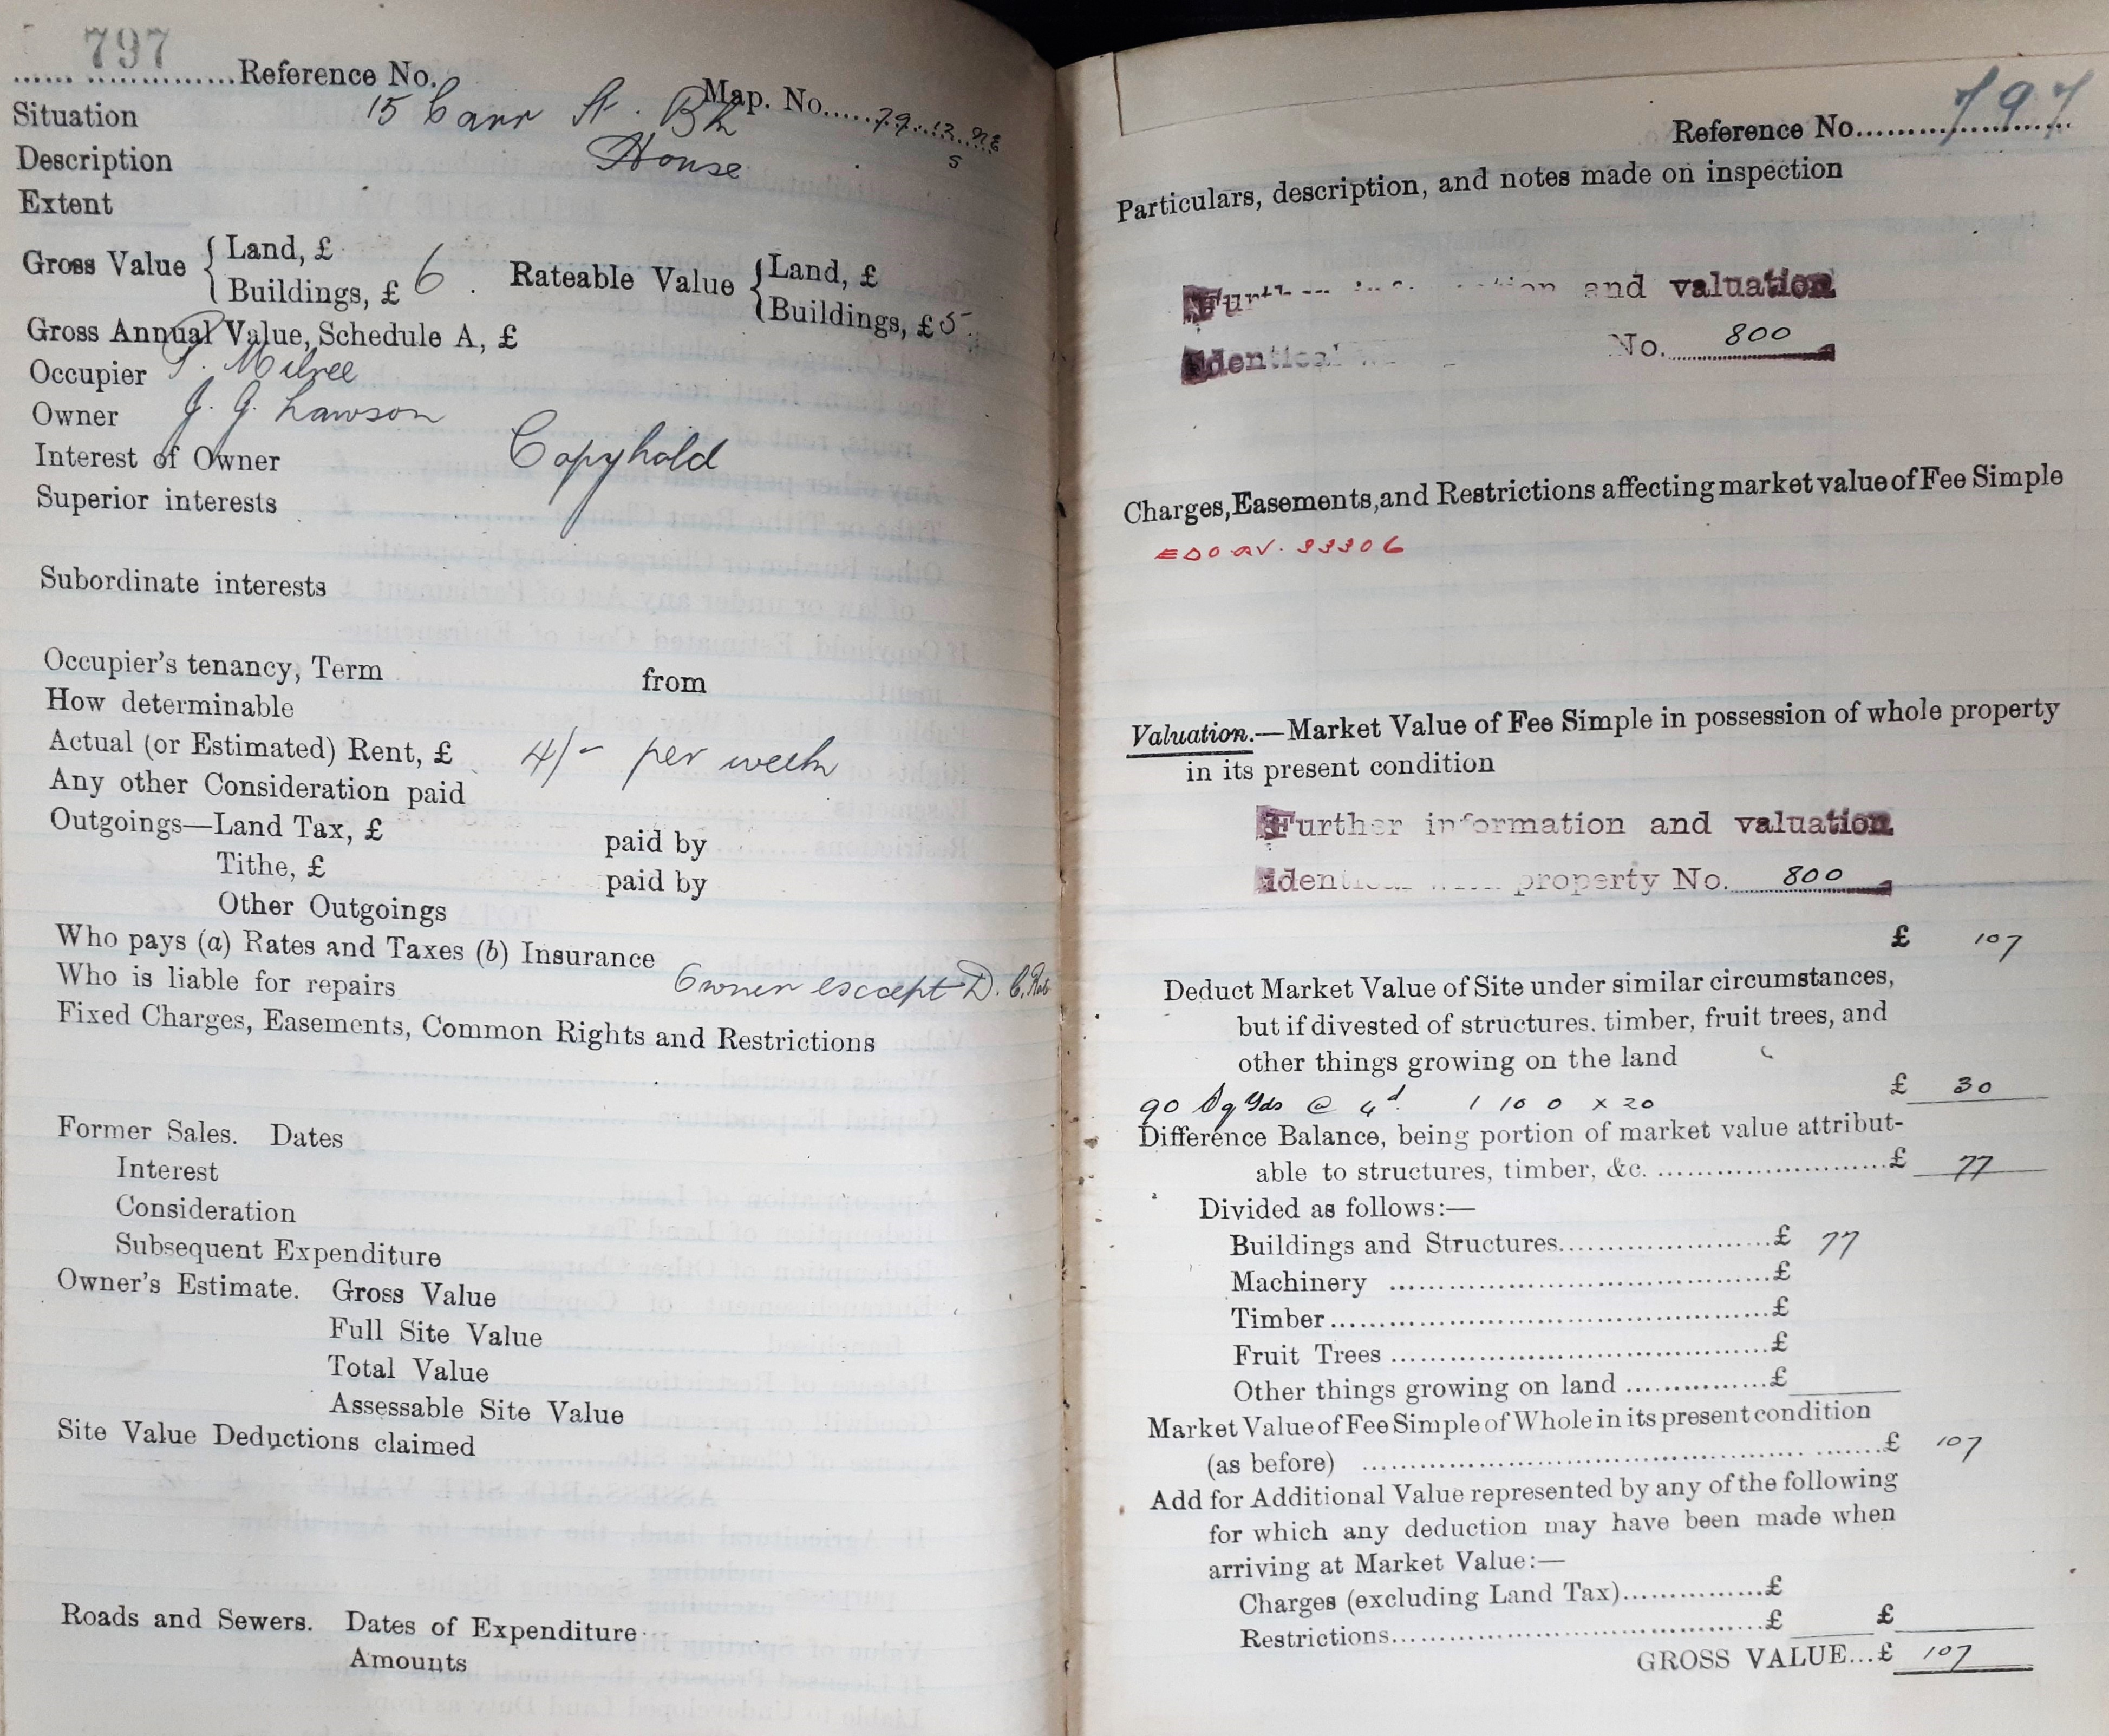 797
...... ..............Reference No.
Map. No.....79.13.
5
Situation 15 Carr St. Bk
Description House
Extent
Gross Value { Land, £
Buildings, £ 6 .
Rateable Value { Land, £
Buildings, £ 5
Gross Annual Value, Schedule A, £
Occupier Milnee
Owner J. G. Lawson
Interest of Owner Copyhold
Superior interests
Subordinate interests
Occupier's tenancy, Term from
How determinable
Actual (or Estimated) Rent, £ 4/- per week
Any other Consideration paid
Outgoings—Land Tax, £ paid by
Tithe, £ paid by
Other Outgoings
Who pays (a) Rates and Taxes (b) Insurance
Who is liable for repairs Owner except D. C. Rate
Fixed Charges, Easements, Common Rights and Restrictions
Former Sales. Dates
Interest
Consideration
Subsequent Expenditure
Owner's Estimate. Gross Value
Full Site Value
Total Value
Assessable Site Value
Site Value Deductions claimed
Roads and Sewers. Dates of Expenditure
Amounts
Reference No. 797
Particulars, description, and notes made on inspection
and valuation
No. 800
Charges, Easements, and Restrictions affecting market value of Fee Simple
33306
Valuation.—Market Value of Fee Simple in possession of whole property
in its present condition
Further information and valuation
property No. 800
£ 107
Deduct Market Value of Site under similar circumstances,
but if divested of structures, timber, fruit trees, and
other things growing on the land
90 Sq Yds @ 4d. 1 10 0 x 20 £ 30
Difference Balance, being portion of market value attribut-
able to structures, timber, &c. ........................£ 77
Divided as follows:—
Buildings and Structures......................£ 77
Machinery ......................£
Timber......................£
Fruit Trees ......................£
Other things growing on land ..............£
Market Value of Fee Simple of Whole in its present condition
(as before) ......................£ 107
Add for Additional Value represented by any of the following
for which any deduction may have been made when
arriving at Market Value:—
Charges (excluding Land Tax)...............£
Restrictions......................£ £
GROSS VALUE...£ 107